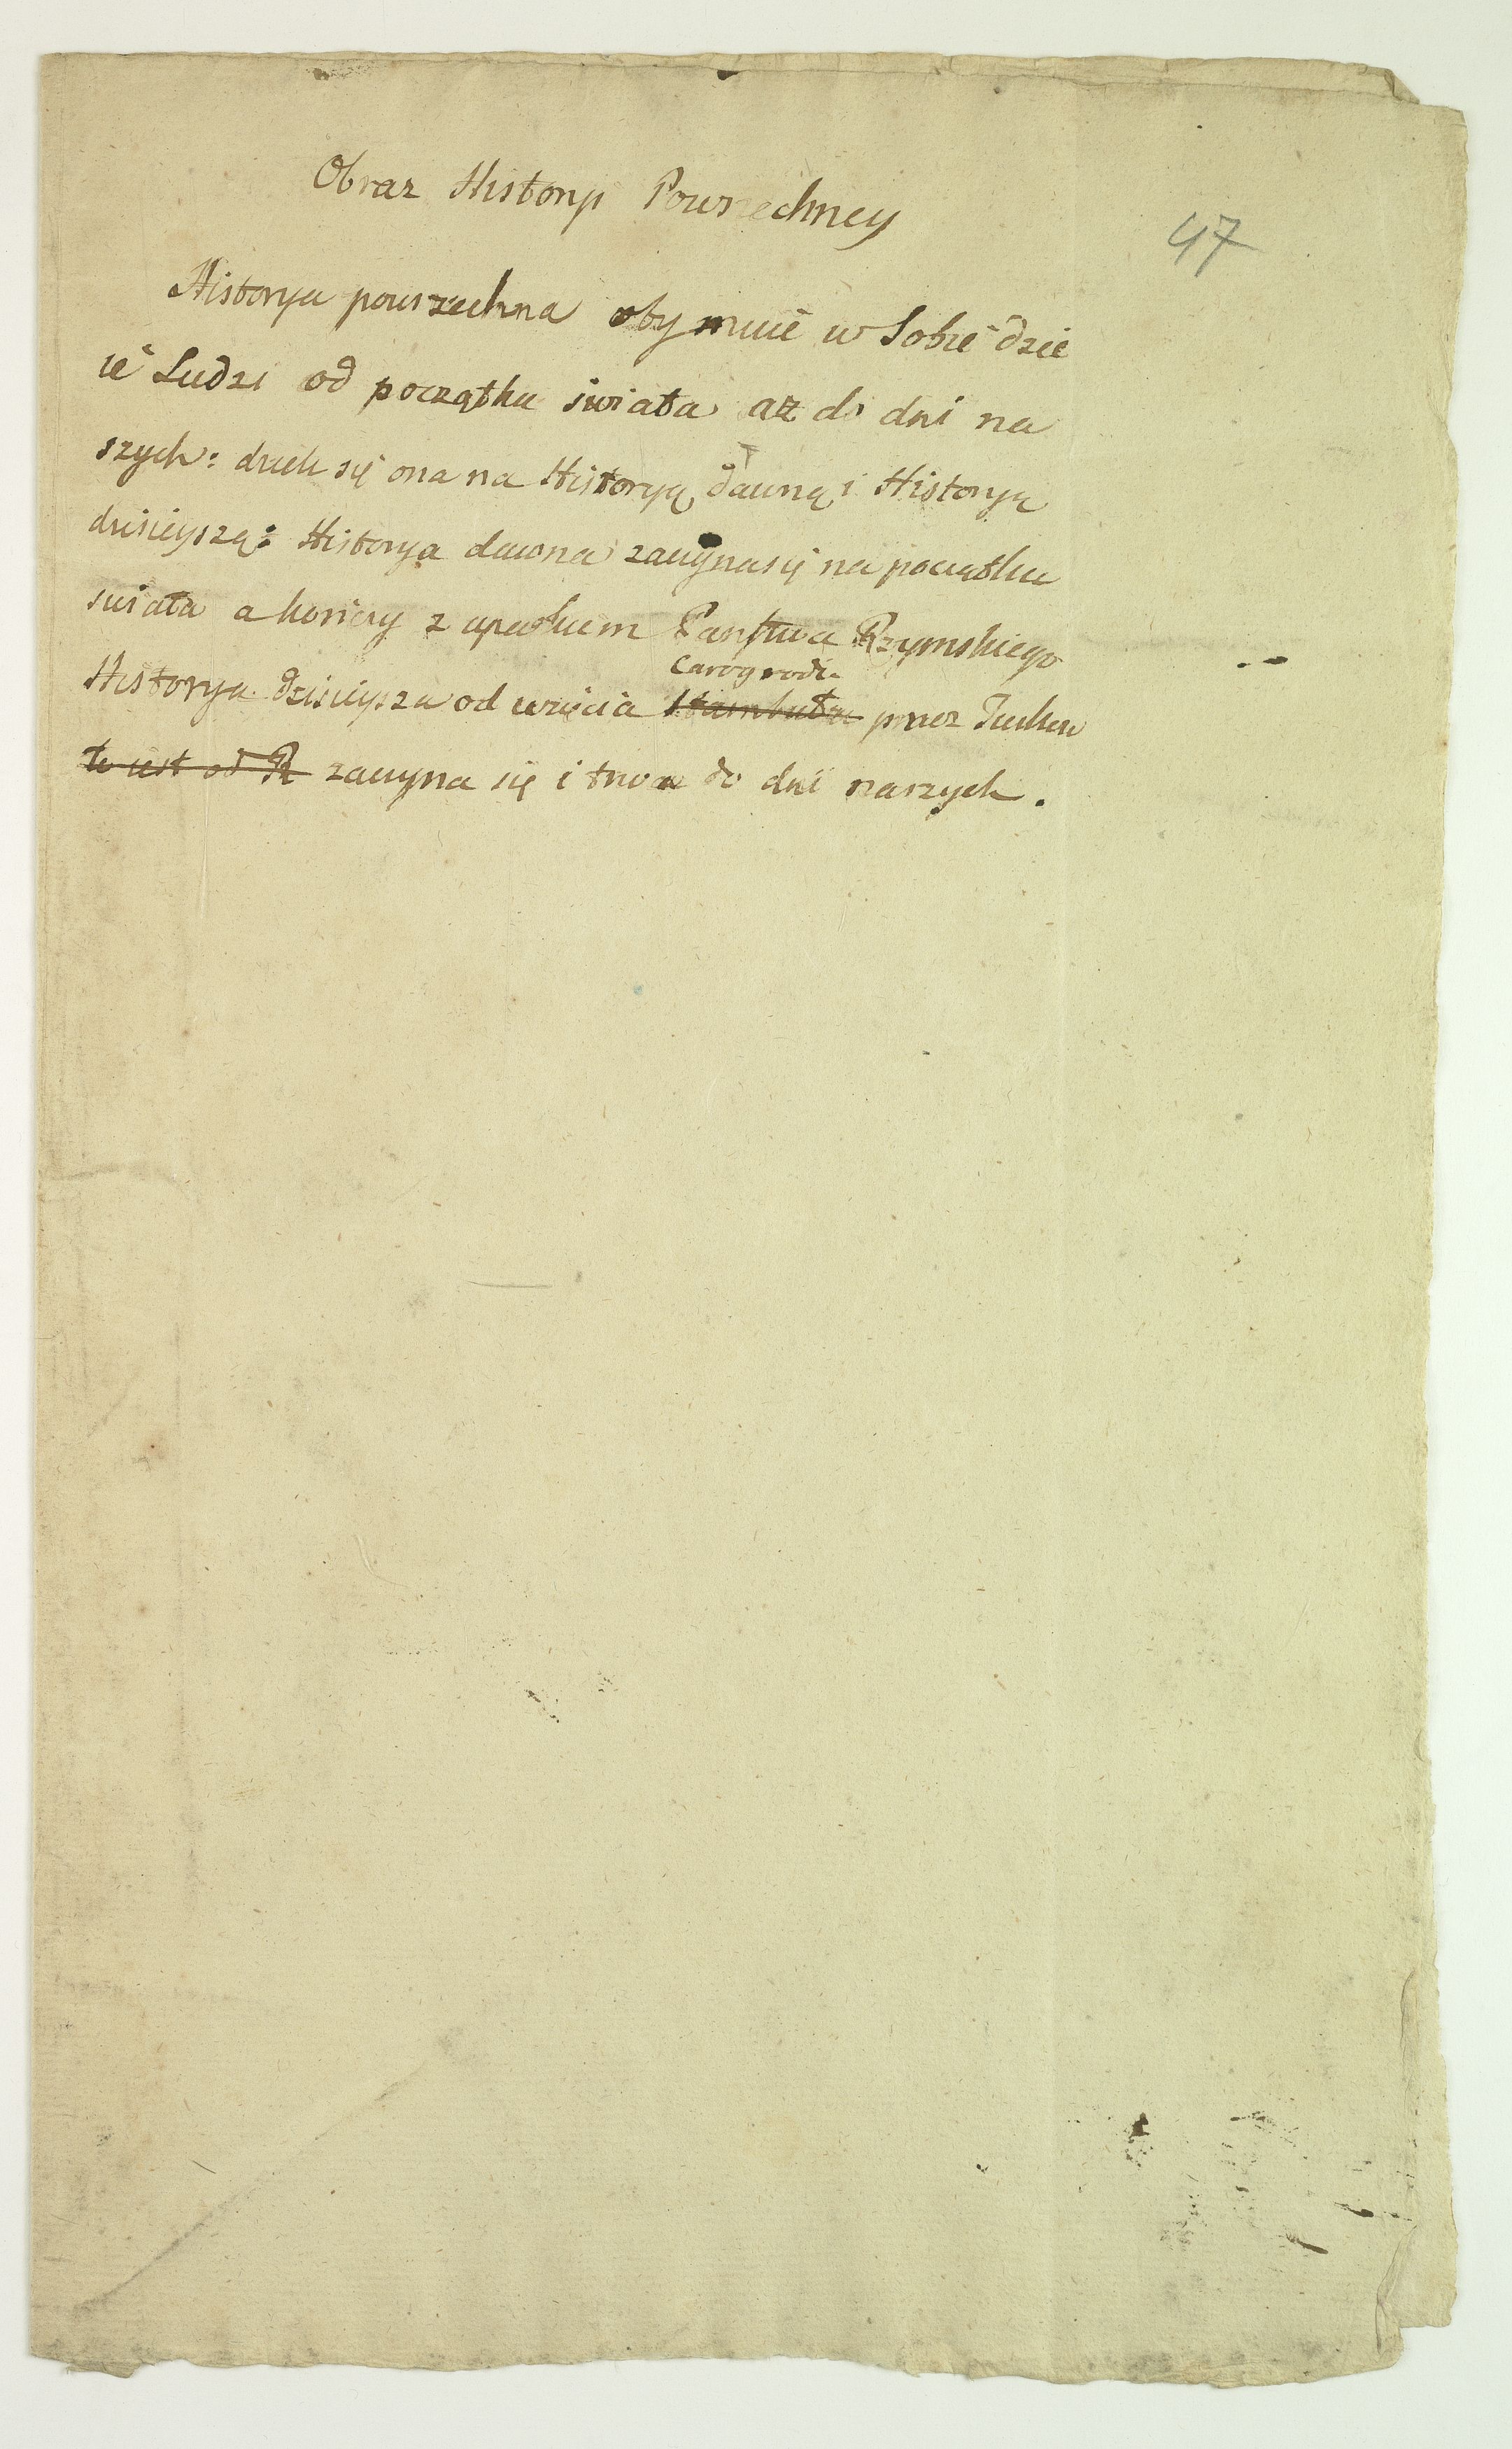 Obraz Historyi Powszechney
47
Historya powszechna obymuie w Sobie dzie
ie Ludzi od początku swiata aż do dni na
szych: dzieli się ona na Historyą dawną i Historyą
dzisieyszą: Historya dawna zaczyna się na początku
swiata a kończy z upadkiem Państwa Rzymskiego
Carogrodu
Historya dzisieysza od wzięcia Stambułu przez Turków
to iest od R zaczyna się i trwa do dni naszych.